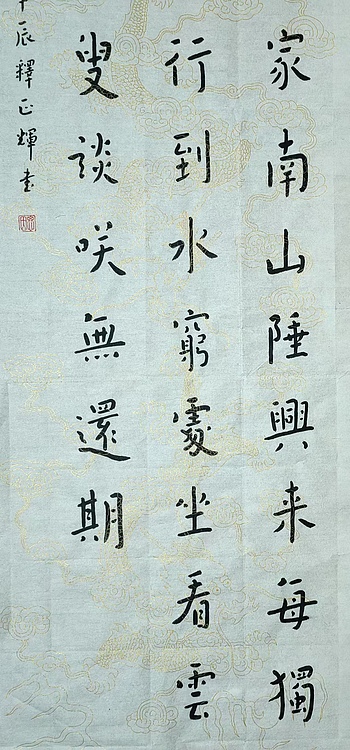 家南山陲興来每獨
行到水窮處坐看雲
叟談咲無還期
辰釋正輝書